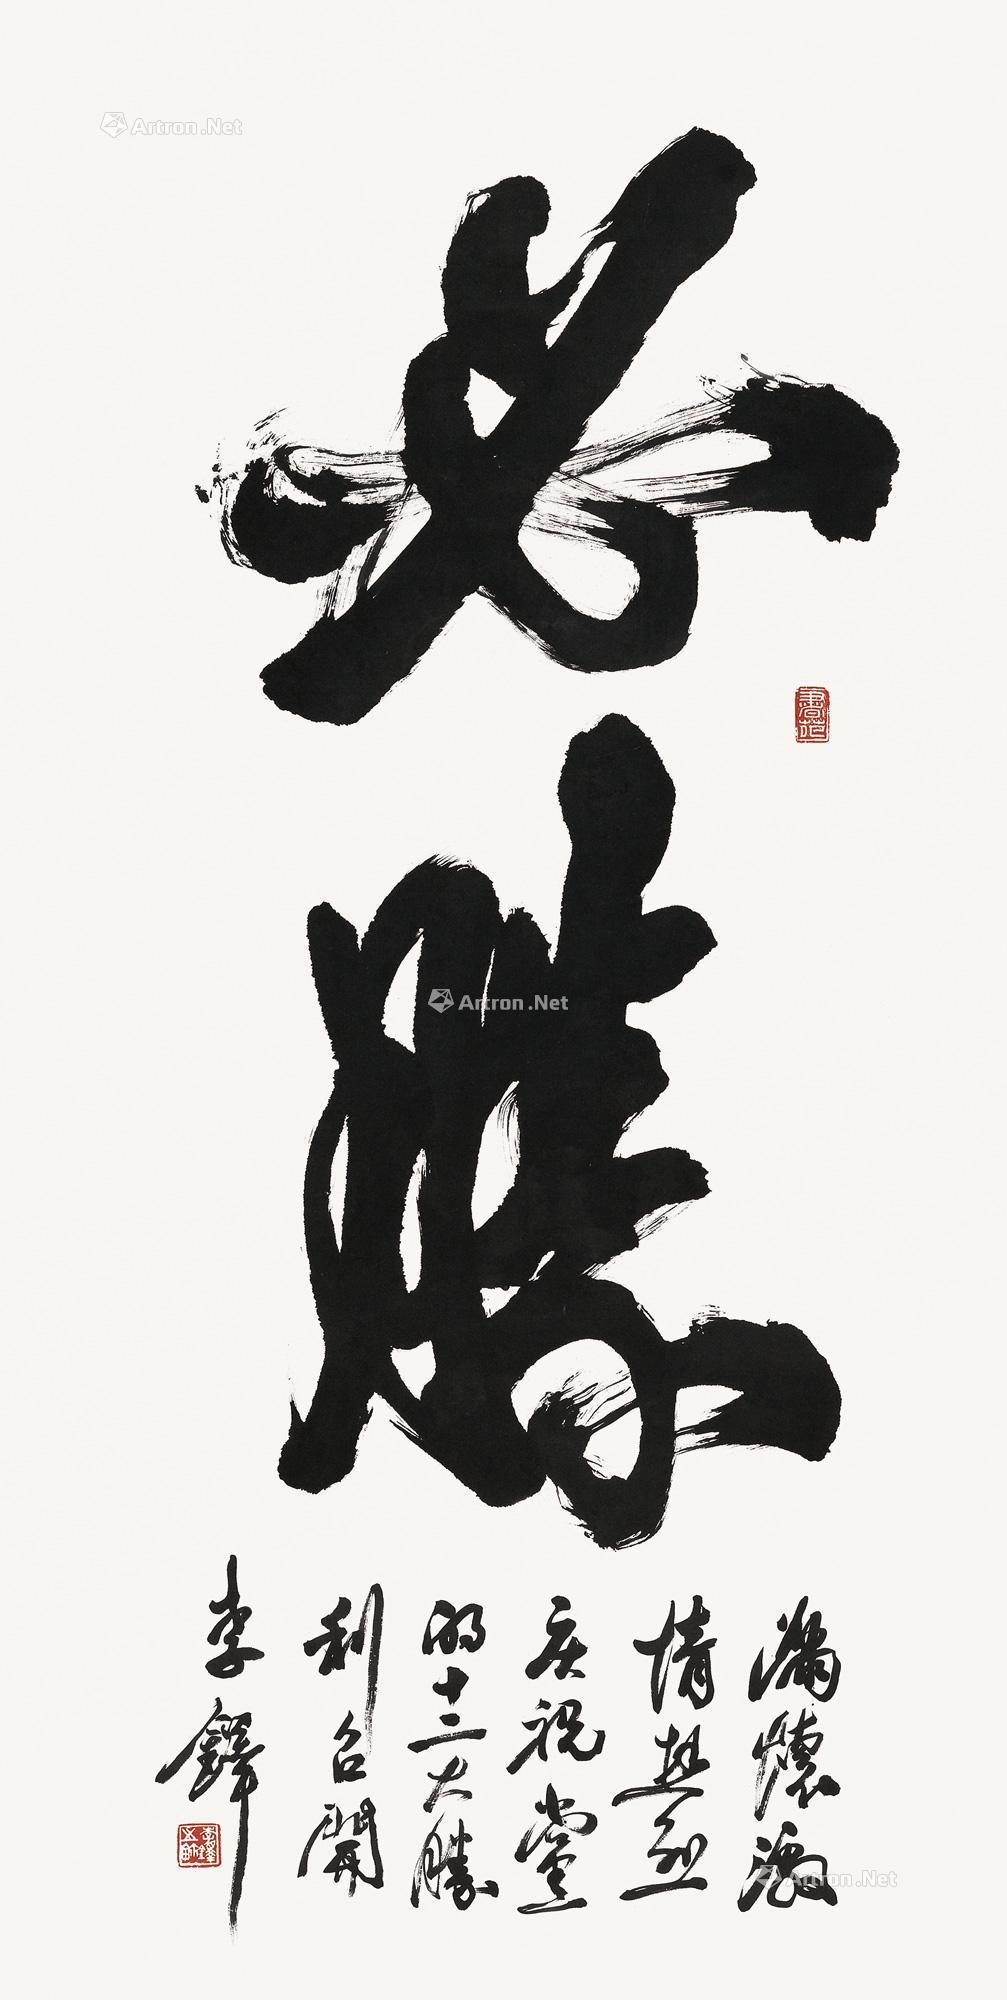 Artron.Net
必
勝
Artron.Net
滿懷激
情热烈
庆祝黨
的十三大勝
利召開
李鐸
Artron.Net